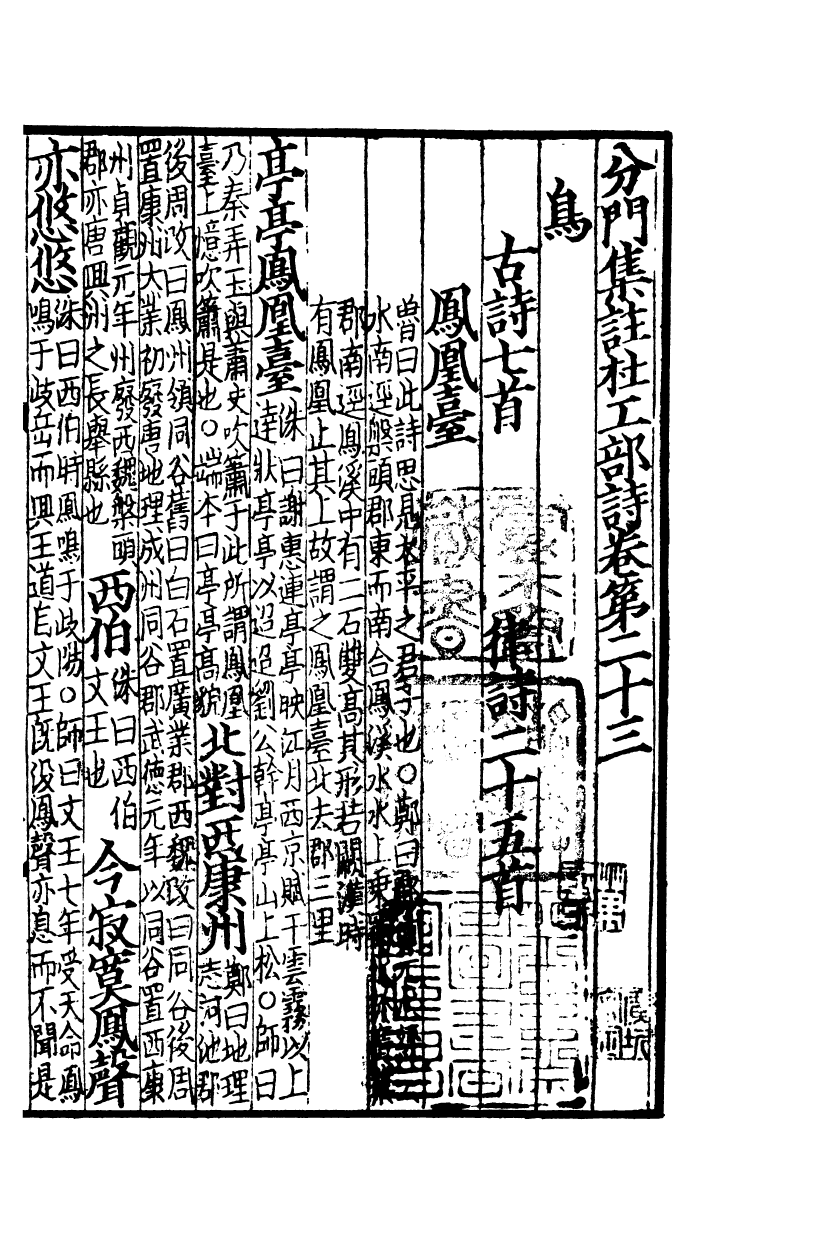 分門集註杜工部詩卷第二十三
鳥
古詩七首
律詩二十五首
鳳凰臺
曾曰此詩思見太平之君子也○鄭曰
水南逕槃頭郡東而南合鳳溪水水上
郡南逕鳳溪中有二石雙高其形若闕漢時
有鳳凰止其上故謂之鳳凰臺北去郡三里
亭亭鳳凰臺
洙曰謝惠連亭亭映江月西京賦干雲霧以上
達狀亭亭以迢迢劉公幹亭亭山上松○師曰
乃秦弄玉與蕭史吹簫于此所謂鳳凰
臺上憶吹簫是也○端本曰亭亭高貌
北對西康州
鄭曰地理
志河池郡
後周改曰鳳州領同谷舊曰白石置廣業郡西魏改曰同谷後周
置康州大業初發唐地理成州同谷郡武德元年以同谷置西康
州貞觀元年州廢西魏槃明
郡亦唐興州之長舉縣也
西伯
洙曰西伯
文王也
今寂寞鳳聲
亦悠悠
洙曰西伯時鳳鳴于歧陽○師曰文王七年受天命鳳
鳴于歧岳而興王道自文王旣沒鳳聲亦息而不聞是